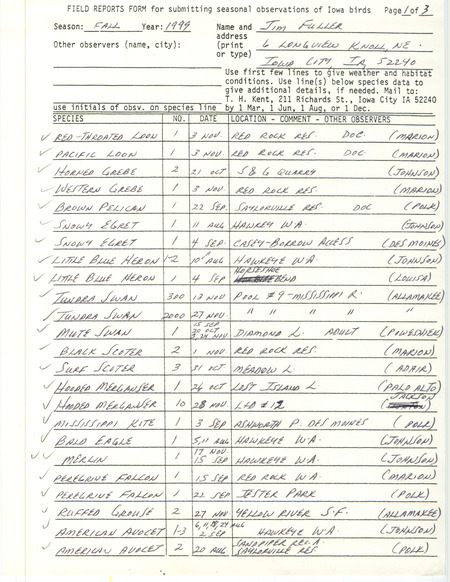 FIELD REPORTS FORM for submitting seasonal observations of Iowa birds Page 1 of 3
Season: FALL Year: 1999 Name and JIM FULLER
address
Other observers (name, city): (print 6 LONGVIEW KNOLL, NE.
or type) IOWA CITY, IA, 52240
Use first few lines to give weather and habitat
conditions. Use line(s) below species data to
give additional details, if needed. Mail to:
T. H. Kent, 211 Richards St., Iowa City IA 52240
use initials of obsv. on species line by 1 Mar, 1 Jun, 1 Aug, or 1 Dec.
SPECIES NO. DATE LOCATION - COMMENT - OTHER OBSERVERS
✓ RED-THROATED LOON 1 3 NOV. RED ROCK RES. DOC. (MARION)
✓ PACIFIC LOON 1 3 NOV. RED ROCK RES. DOC (MARION)
✓ HORNED GREBE 2 21 OCT S & G QUARRY (JOHNSON)
✓ WESTERN GREBE 1 3 NOV. RED ROCK RES. (MARION)
✓ BROWN PELICAN 1 22 SEP. SAYLORVILLE RES. DOC (POLK)
✓ SNOWY EGRET 1 11 AUG HAWKEY W.A. (JOHNSON)
✓ SNOWY EGRET 1 4 SEP. CASEY-BORROW ACCESS (DES MOINES)
✓ LITTLE BLUE HERON 1-2 AUG HAWKEYE W.A. (JOHNSON)
✓ LITTLE BLUE HERON 1 4 SEP HORSESHOE BEND (LOUISA)
✓ TUNDRA SWAN 300 13 NOV POOL #9 - MISSISSIPPI R. (ALLAMAKEE)
✓ TUNDRA SWAN 2000 27 NOV. " " " " "
✓ MUTE SWAN 1 15 SEP 20 OCT 3, 24 NOV. DIAMOND L. ADULT (POWESHIEK)
✓ BLACK SCOTER 2 1 NOV RED ROCK RES. (MARION)
✓ SURF SCOTER 3 31 OCT MEADOW L. (ADAIR)
✓ HOODED MERGANSER 1 26 OCT LOST ISLAND L (PALO ALTO)
✓ HOODED MERGANSER 10 28 NOV. L+D #12 (JACKSON)
✓ MISSISSIPPI KITE 1 3 SEP ASHWORTH P. DES MOINES (POLK)
✓ BALD EAGLE 1 5, 11 AUG HAWKEYE W.A. (JOHNSON)
✓ ✓ MERLIN 1 17 NOV. 15 SEP HAWKEYE W.A. (JOHNSON)
✓ PEREGRINE FALCON 1 15 SEP RED ROCK W.A. (MARION)
✓ PEREGRINE FALCON 1 22 SEP JESTER PARK (POLK)
✓ RUFFED GROUSE 2 27 NOV YELLOW RIVER S.F. (ALLAMAKEE)
✓ AMERICAN AVOCET 1-3 6, 11, 18, 24 AUG 2 SEP HAWKEYE W.A. (JOHNSON)
✓ AMERICAN AVOCET 2 20 AUG SANDPIPER REC. A. SAYLORVILLE RES. (POLK)